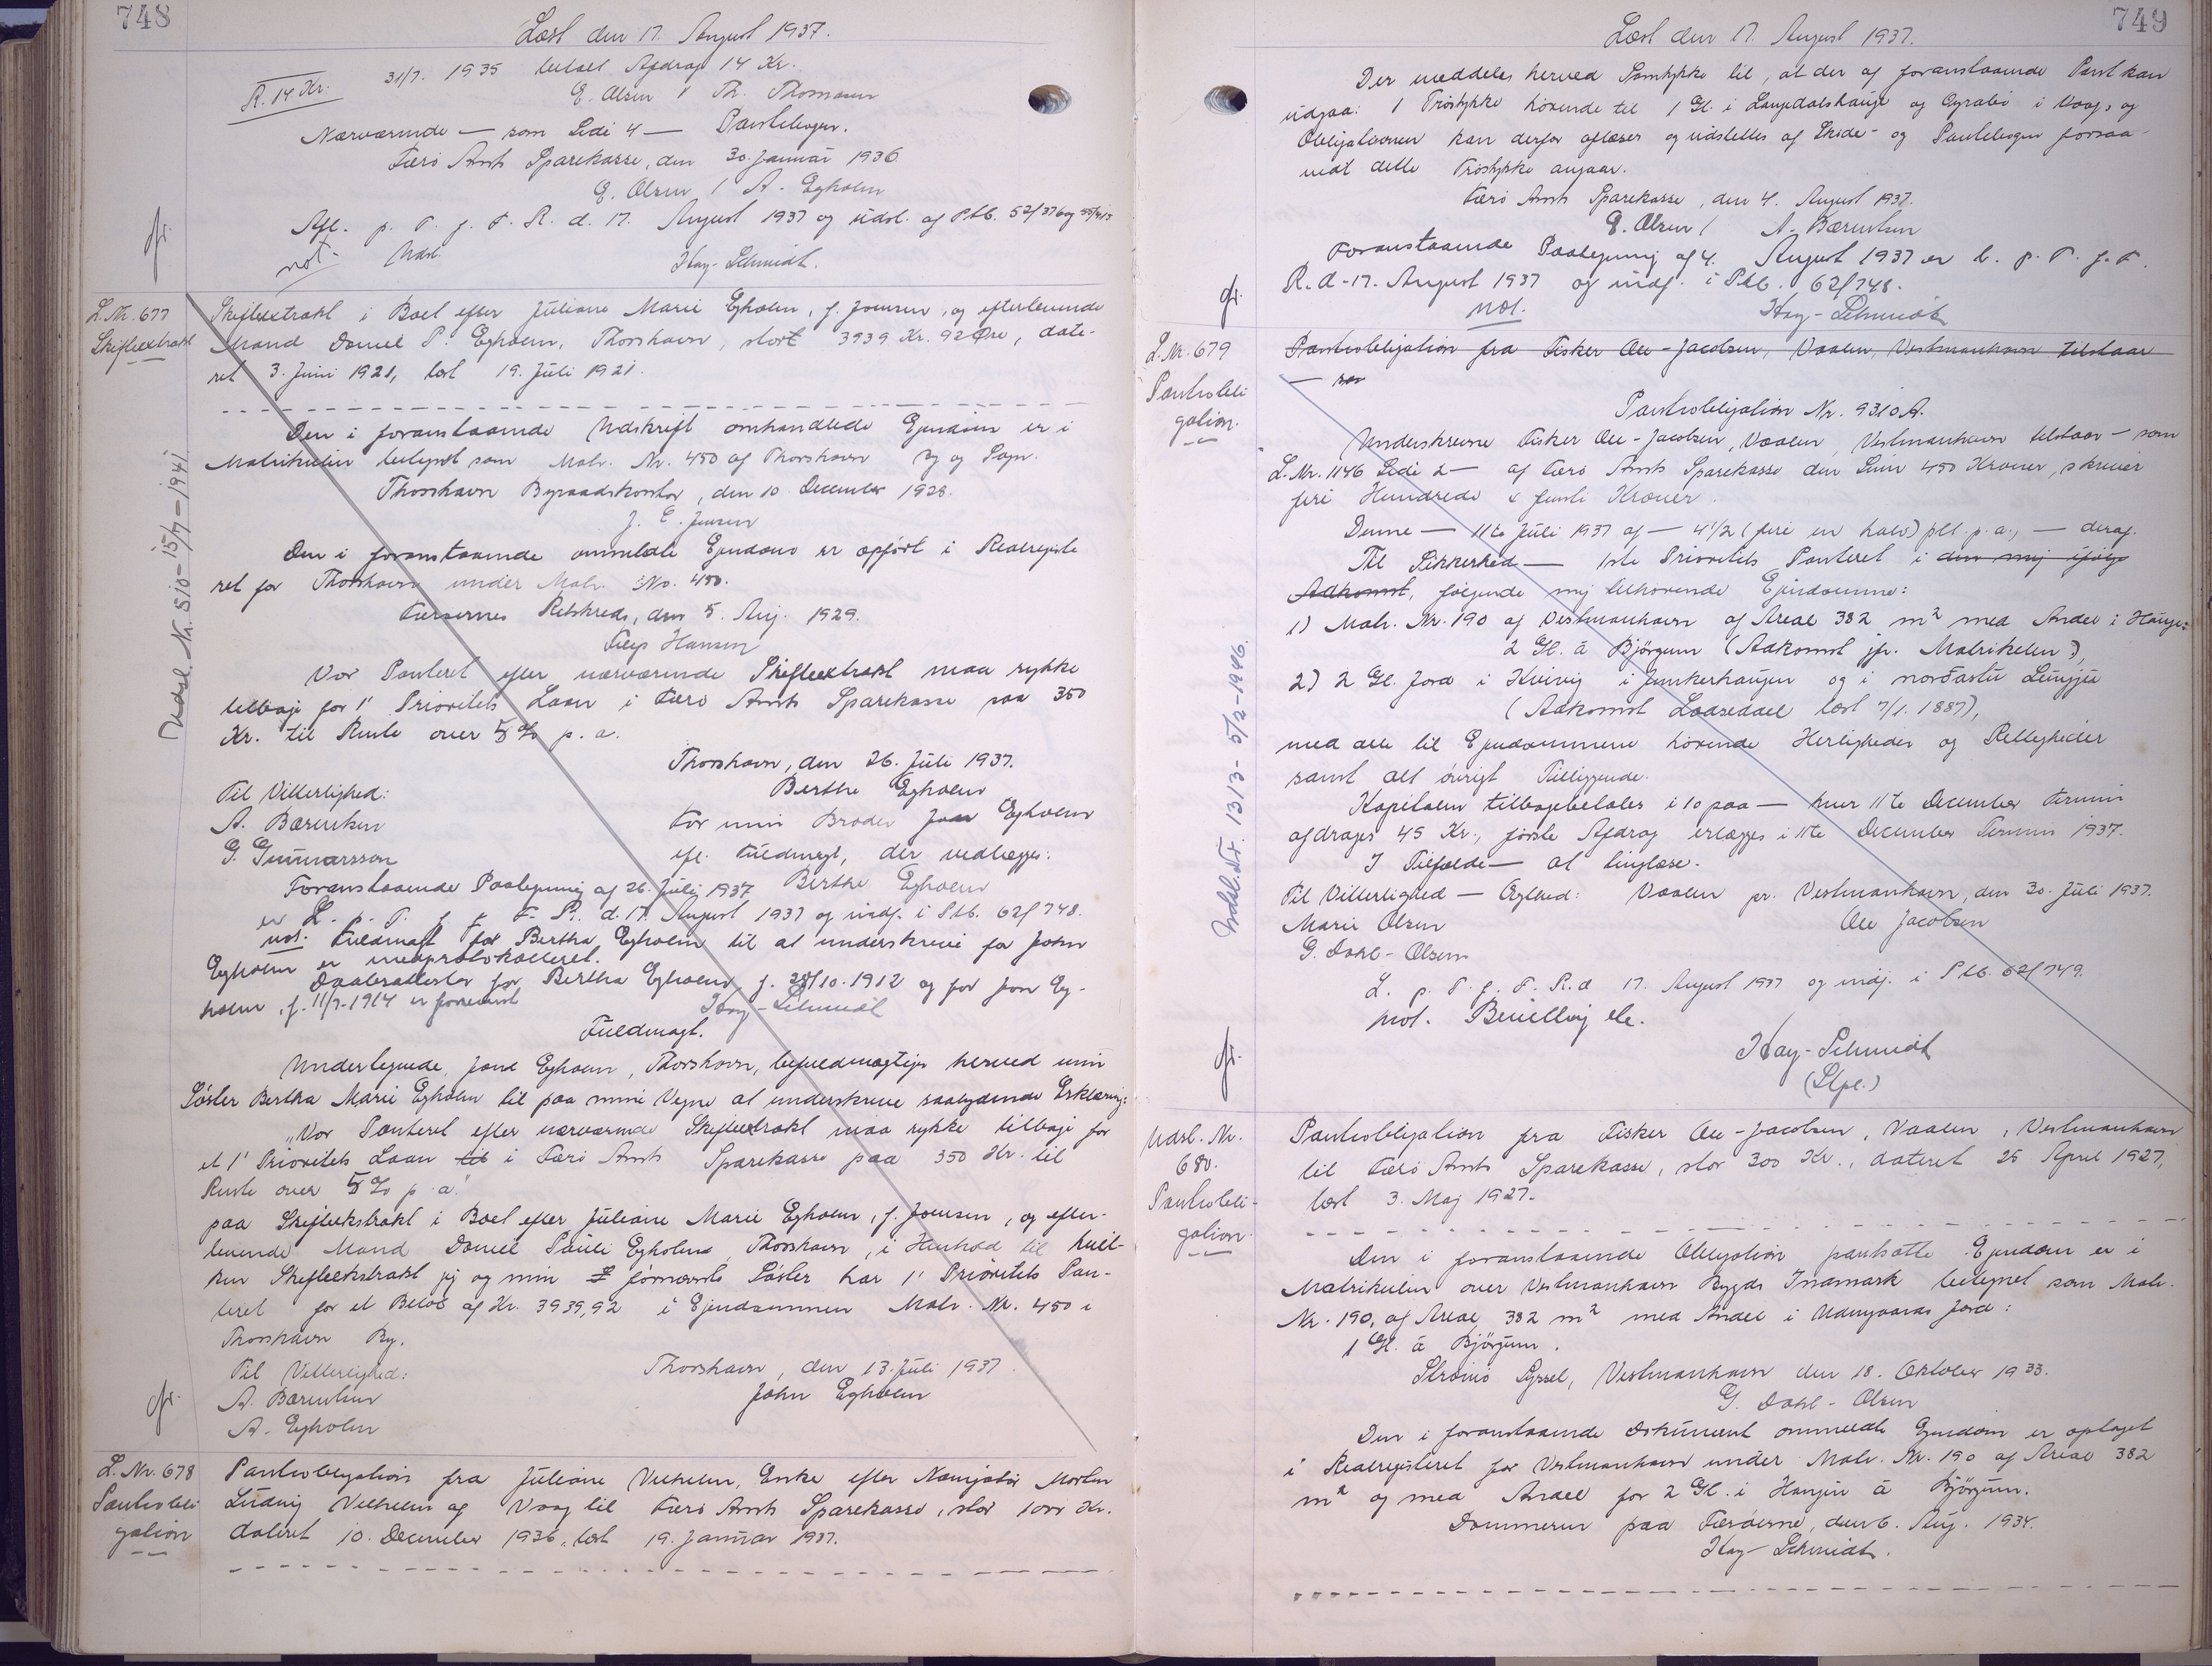 748
Læst den 17. August 1937.
R. 14 Kr.
31/7. 1935 betalt Afdrag 14 Kr.
E. Olsen / Th. Thomsen
Nærværende — som Side 4 — Pantebogen.
Færø Amts Sparekasse, den 30. Januar 1936
E. Olsen / A. Egholm
Afl. p. T. f. F. R. d. 17. August 1937 og udsl. af Ptb. 52/376 og
not. Udsl.
Hay-Schmidt.
L. Nr. 677
Skifteextrakt
Skifteextrakt i Boet efter Juliane Marie Egholm, f. Joensen, og efterlevende
Mand Daniel P. Egholm, Thorshavn, stort 3939 Kr. 92 Øre, date-
ret 3. Juni 1921, læst 19. Juli 1921.
Den i foranstaaende Udskrift omhandlede Ejendom er i
Matrikulen betegnet som Matr. Nr. 450 af Thorshavn By og Sogn.
Thorshavn Byraadskontor, den 10 December 1928.
J. E. Jensen
Den i foranstaaende ommeldte Ejendom er opført i Realregiste
ret for Thorshavn under Matr. No. 450.
Færøernes Retskreds, den 5. Aug. 1929.
Hansen
Vor Panteret efter nærværende Skifteextrakt maa rykke
tilbage for 1' Prioritets Laan i Færø Amts Sparekasse paa 350
Kr. til Rente over 5% p. a.
Thorshavn, den 26. Juli 1937.
Til Vitterlighed:
Berthe Egholm
A. Bærentsen
For min Broder Jon Egholm
G. Gunnarsson
efl. Fuldmagt, der vedlægges:
Berthe Egholm
Foranstaaende Paategning af 26. Juli 1937
er L. p. T. f. F. R. d. 17. August 1937 og indf. i Ptb. 62/748.
not. Fuldmagt for Bertha Egholm til at underskrive for John
Egholm er medprotokolleret.
Daabsattester for Bertha Egholm f. 28/10. 1912 og for Jon Eg-
holm, f. 11/7-1914 er forevist
Hay-Schmidt
Fuldmagt.
Undertegnede, Jone Egholm, Thorshavn, befuldmægtiger herved min
Søster Bertha Marie Egholm til paa mine Vegne at underskrive saalydende Erklæring:
„Vor Panteret efter nærværende Skifteextrakt maa rykke tilbage for
et 1' Prioritets Laan til i Færø Amts Sparekasse paa 350 Kr. til
Rente over 5% p. a."
paa Skifteekstrakt i Boet efter Juliane Marie Egholm, f. Joensen, og efter-
levende Mand Daniel Pauli Egholm, Thorshavn, i Henhold til hvil-
ken Skifteekstrakt jeg og min fornævnte Søster har 1' Prioritets Pan-
teret for et Beløb af Kr. 3939,92 i Ejendommen Matr. Nr. 450 i
Thorshavn By.
Til Vitterlighed:
Thorshavn, den 13. Juli 1937.
A. Bærentsen
John Egholm
A. Egholm
Udsl. Nr. 510 - 15/7 - 1941
L. Nr. 678
Pantobli
gation
Pantobligation fra Juliane Vilhelm, Enke efter Navigatør Morten
Ludvig Vilhelm af Vaag til Færø Amts Sparekasse, stor 1000 Kr.
dateret 10. December 1936, læst 19. Januar 1937.
749
Læst den 17. August 1937.
Der meddeles herved Samtykke til, at der af foranstaaende Pant kan
udgaa: 1 Trøstykke hørende til 1 Gl. i Langedalshauge og Gyrabø i Vaag, og
Obligationen kan derfor aflæses og udslettes af Skøde- og Pantebogen forsaa-
vidt dette Trøstykke angaar.
Færø Amts Sparekasse, den 4. August 1937.
E. Olsen / A. Bærentsen
Foranstaaende Paategning af 4. August 1937 er L. p. T. f. F.
R. d. 17. August 1937 og indf. i Ptb. 62/748.
not.
Hay-Schmidt
L. Nr. 679
Pantobli
gation.
Pantobligation fra Fisker Ole-Jacobsen, Vaalen, Vestmanhavn tilstaar
— som
Pantobligation Nr. 9310 A.
Underskrevne Fisker Ole-Jacobsen, Vaalen, Vestmanhavn tilstaar — som
L. Nr. 1146 Side 2 — af Færø Amts Sparekasse den Sum 450 Kroner, skriver
fire Hundrede & femti Kroner.
Denne — 11te Juli 1937 af — 4 1/2 (fire en halv) pCt. p. a., — deraf.
Til Sikkerhed — 1ste Prioritets Panteret i den mig ifølge
Adkomst, følgende mig tilhørende Ejendomme:
1) Matr. Nr. 190 af Vestmanhavn af Areal 382 m² med Andel i Hauge:
2 Gl. á Bjørgum (Adkomst jfr. Matrikulen),
2) 2 Gl. Jord i Kvivig i Junkerhaugen og i norðastu Lungju
(Adkomst Lodseddel læst 7/1. 1887),
med alle til Ejendommene hørende Herligheder og Rettigheder
samt alt øvrigt Tilliggende.
Kapitalen tilbagebetales i 10 paa — hver 11te December Termin
afdrages 45 Kr., første Afdrag erlægges i 11te December Termin 1937.
I Tilfælde — at tinglæse.
Til Vitterlighed — Ægthed: Vaalen pr. Vestmanhavn, den 30. Juli 1937.
Marie Olsen
Ole Jacobsen
G. Dahl-Olsen
L. p. T. f. F. R. d 17. August 1937 og indf. i Ptb. 62/749.
not. Bevilling etc.
Hay-Schmidt
(Stpl.)
Udsl. Nr. 1313 - 5/2-1946.
Udsl. Nr.
680.
Pantobli-
gation
Pantobligation fra Fisker Ole-Jacobsen, Vaalen, Vestmanhavn
til Færø Amts Sparekasse, stor 300 Kr., dateret 25 April 1927,
læst 3. Maj 1927.
Den i foranstaaende Obligation pantsatte Ejendom er i
Matrikulen over Vestmanhavn Bygds Indmark betegnet som Matr.
Nr. 190, af Areal 382 m² med Andel i Udengaards Jord:
1 Gl. á Bjørgum.
Strømø Syssel, Vestmanhavn den 18. Oktober 1933.
G. Dahl-Olsen
Den i foranstaaende Dokument ommeldte Ejendom er optaget
i Realregisteret for Vestmanhavn under Matr. Nr. 190 af Areal 382
m² og med Andel for 2 Gl. i Haugin á Bjørgum.
Dommeren paa Færøerne, den 6. Aug. 1934.
Hay-Schmidt.